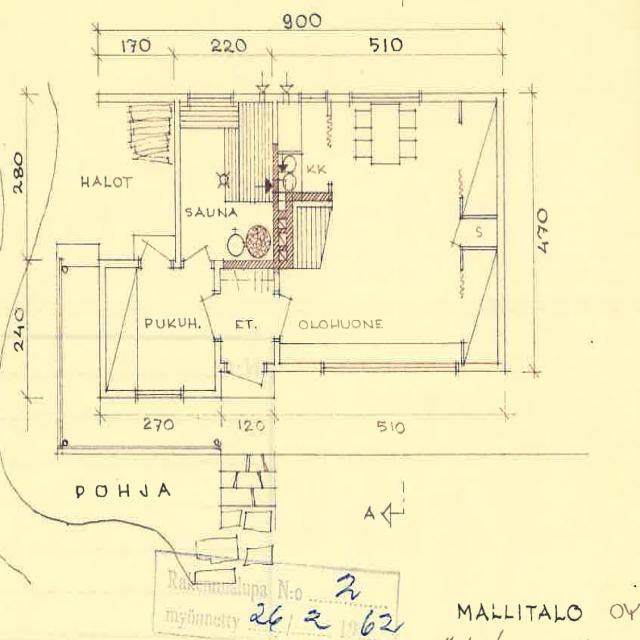 900
170 220 510
280
HALOT
SAUNA
KK
S
470
240
PUKUH. ET. OLOHUONE
270 120 510
POHJA
A
Rakennuslupa N:o 2
myönnetty 26 / 2 1962
MALLITALO OY